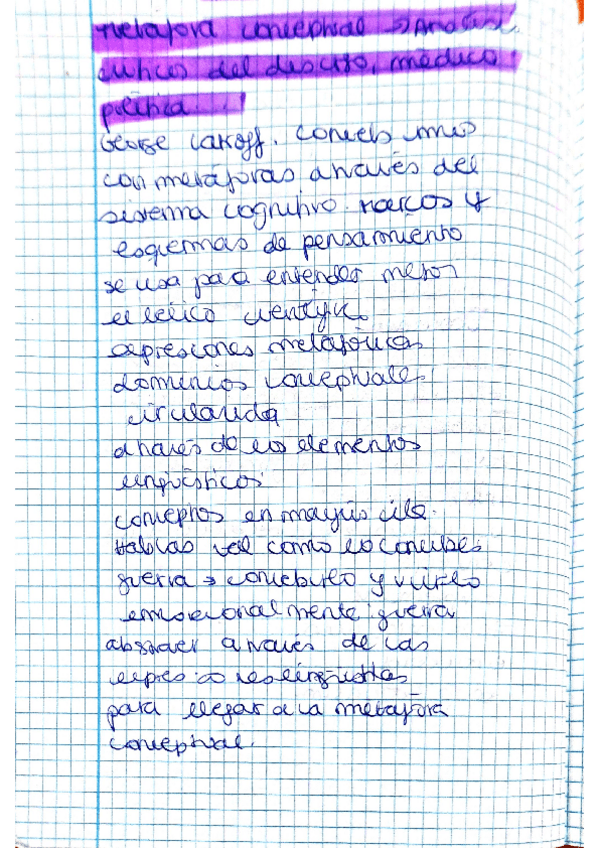 metafora conceptual → Análisis
críticos del discurso, médico
política.
George Lakoff. Concebimos
con metáforas a través del
sistema cognitivo. marcos y
esquemas de pensamiento
se usa para entender mejor
el léxico científico
expresiones metafóricas
dominios conceptuales
circulando
a través de los elementos
lingüísticos
conceptos en mayúscula.
Hablas tal como lo concibes
guerra → concebirlo y vivirlo
emocionalmente guerra
abstraer a través de las
expresiones lingüísticas
para llegar a la metáfora
conceptual.